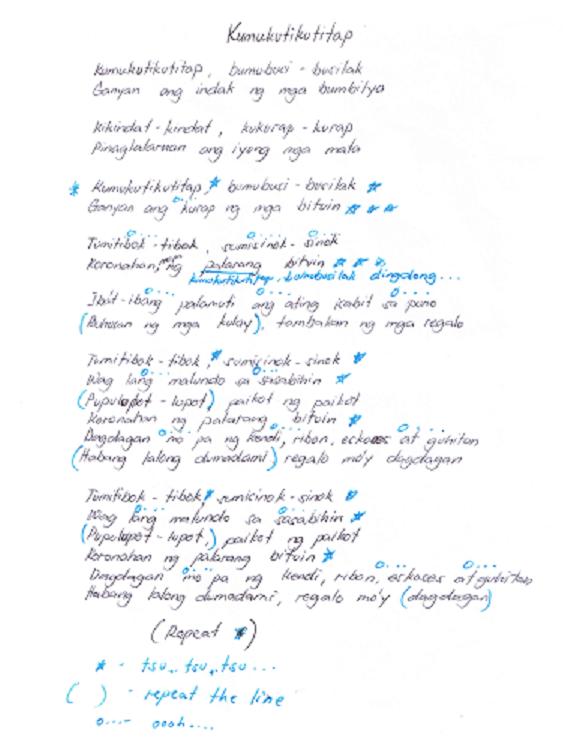 Kumukutikutitap
Kumukutikutitap, bumubusi-busilak
Ganyan ang indak ng mga bumbilya
Kikindat-kindat, kukurap-kurap
Pinaglalaruan ang iyong mga mata
* Kumukutikutitap,* bumubusi-busilak *
Ganyan ang kurap ng mga bituin * * *
Tumitibok-tibok, sumisinok-sinok
Koronahan, ng palarang bituin * * *
kumukutikutitap, bumubusilak dingdong...
Ibat-ibang palamuti ang ating isabit sa puno
(Buhusan ng mga kulay), tambakan ng mga regalo
Tumitibok-tibok,* sumisinok-sinok *
Wag lang malundo sa sasabihin *
(Pupulupot-lupot) paikot ng paikot
Koronahan ng palarang bituin *
Dagdagan mo pa ng kendi, ribon, eskoses at guhitan
(Habang lalong dumadami) regalo mo'y dagdagan
Tumitibok-tibok,* sumisinok-sinok *
Wag lang malundo sa sasabihin *
(Pupulupot-lupot,) paikot ng paikot
Koronahan ng palarang bituin *
Dagdagan mo pa ng kendi, ribon, eskoses at guhitan
Habang lalong dumadami, regalo mo'y (dagdagan)
(Repeat *)
* - tsu.. tsu.. tsu...
( ) - repeat the line
o...- oooh....